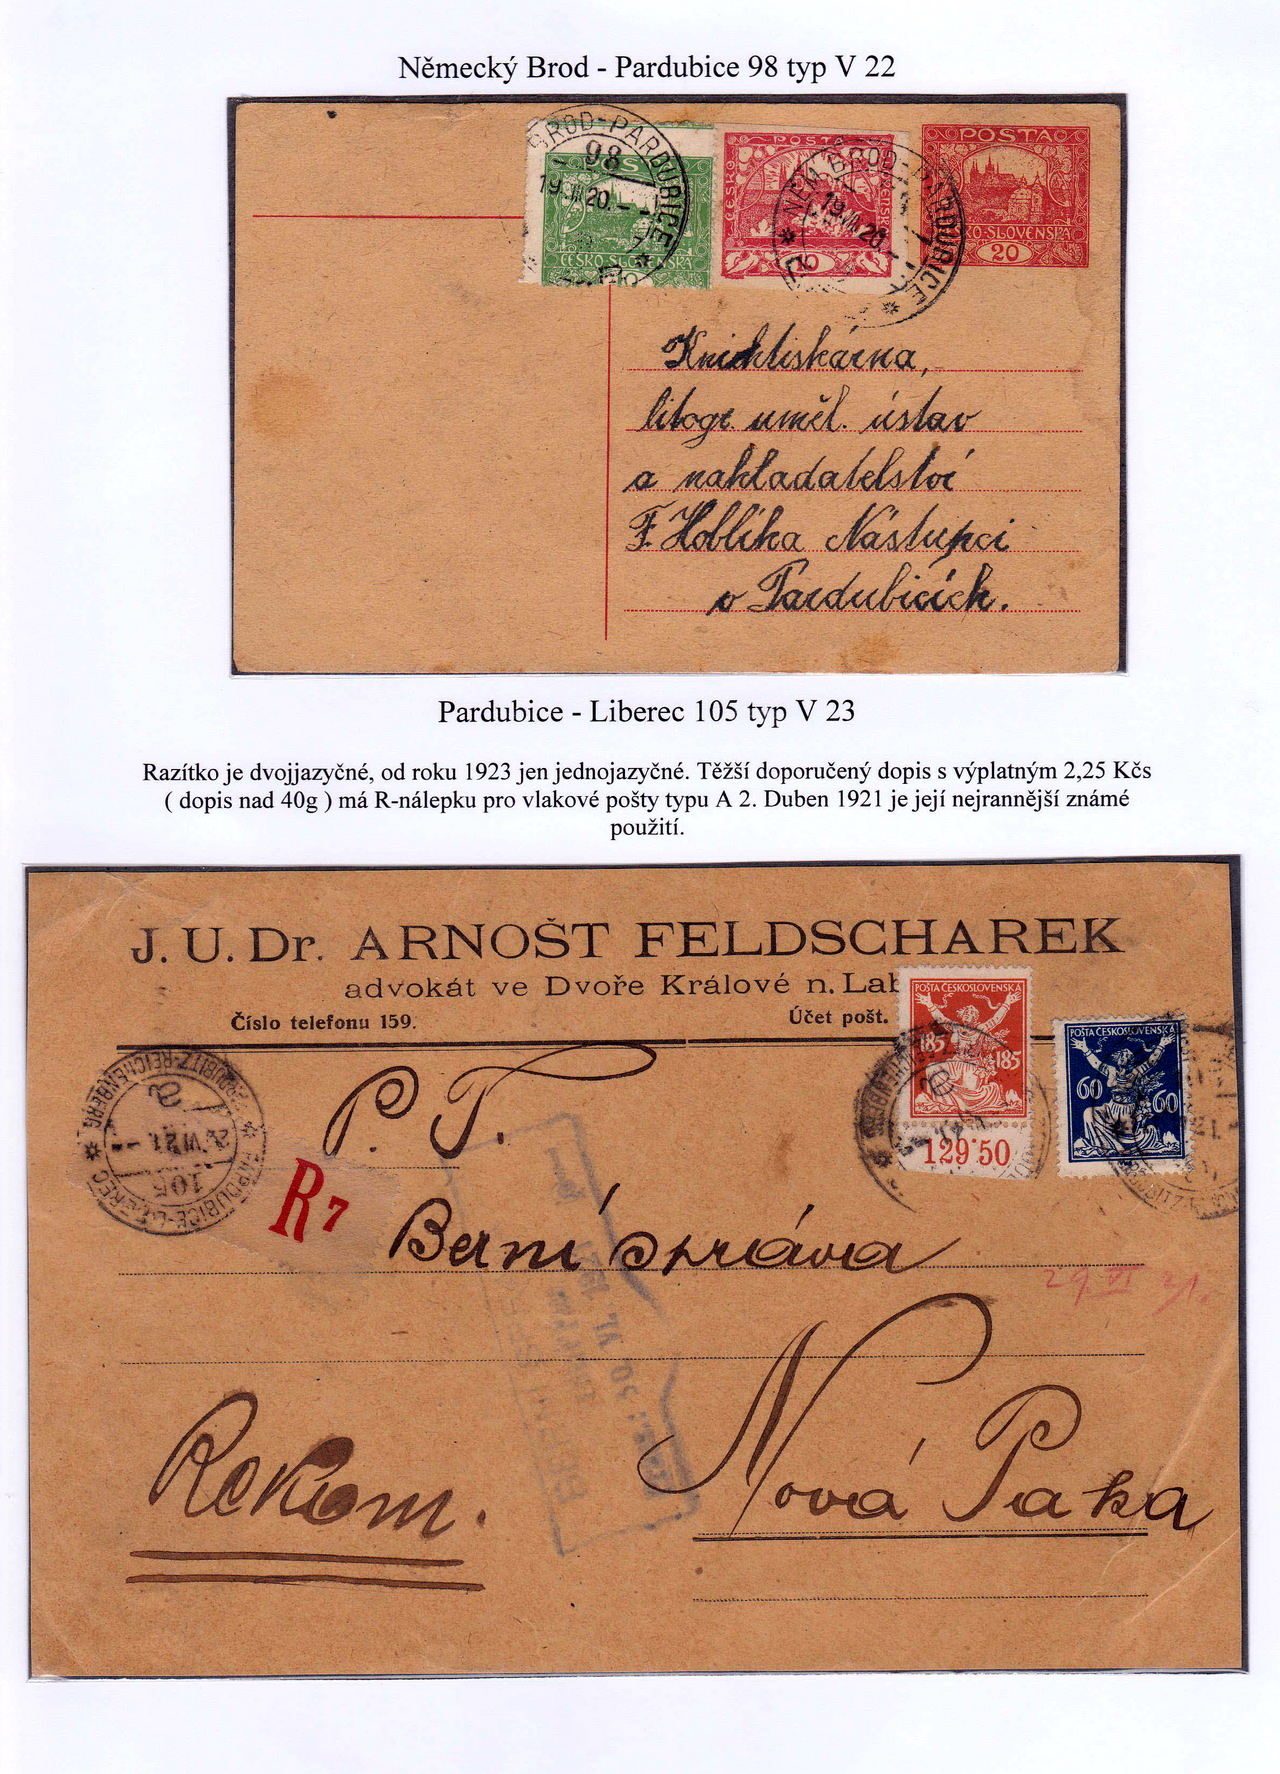 Německý Brod - Pardubice 98 typ V 22
BROD-PARDUBICE
98
19.VII.20.
7
ČESKO-SLOVENSKÁ
POŠTA
NĚM.BROD-PARDUBICE
19.VII.20.
POŠTA
20
Knichtiskárna,
litogr. uměl. ústav
a nakladatelství
F. Hoblíka Nástupci
v Pardubicích.
Pardubice - Liberec 105 typ V 23
Razítko je dvojjazyčné, od roku 1923 jen jednojazyčné. Těžší doporučený dopis s výplatným 2,25 Kčs
( dopis nad 40g ) má R-nálepku pro vlakové pošty typu A 2. Duben 1921 je její nejrannější známé
použití.
J. U. Dr. ARNOŠT FELDSCHAREK
advokát ve Dvoře Králové n. Lab
Číslo telefonu 159.
Účet pošt.
POŠTA ČESKOSLOVENSKÁ
185 185
129·50
POŠTA ČESKOSLOVENSKÁ
60 60
PARDUBITZ-REICHENBERG
PARDUBICE-LIBEREC
105
P. T.
R 7
Berní správa
29 VI 21.
Rekom.
Nová Paka